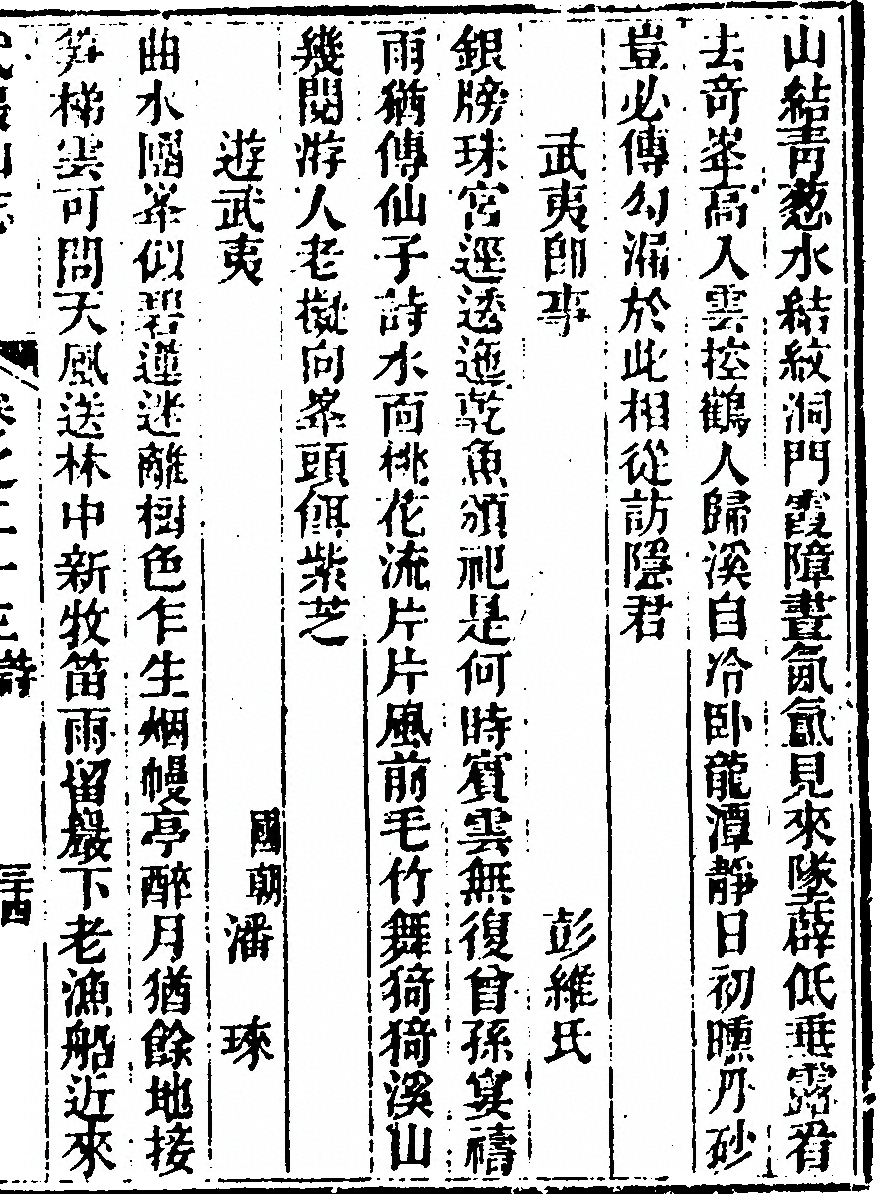 山結青葱水結紋洞門霞障晝氤氳見來墜薜低垂露看
去奇峯高入雲控鶴人歸溪自冷臥龍潭靜日初曛丹砂
豈必傳勾漏於此相從訪隱君
武夷卽事 彭維氏
銀牓珠宮逕逶迤乾魚頒祀是何時賓雲無復曾孫宴禱
雨猶傳仙子詩水面桃花流片片風前毛竹舞猗猗溪山
幾閱游人老擬向峯頭餌紫芝
遊武夷 國朝潘 琜
曲水團峯似碧蓮迷離樹色乍生烟幔亭醉月猶餘地接
笋梯雲可問天風送林中新牧笛雨留巖下老漁船近來
武夷山志 卷之二十三 詩 三十四